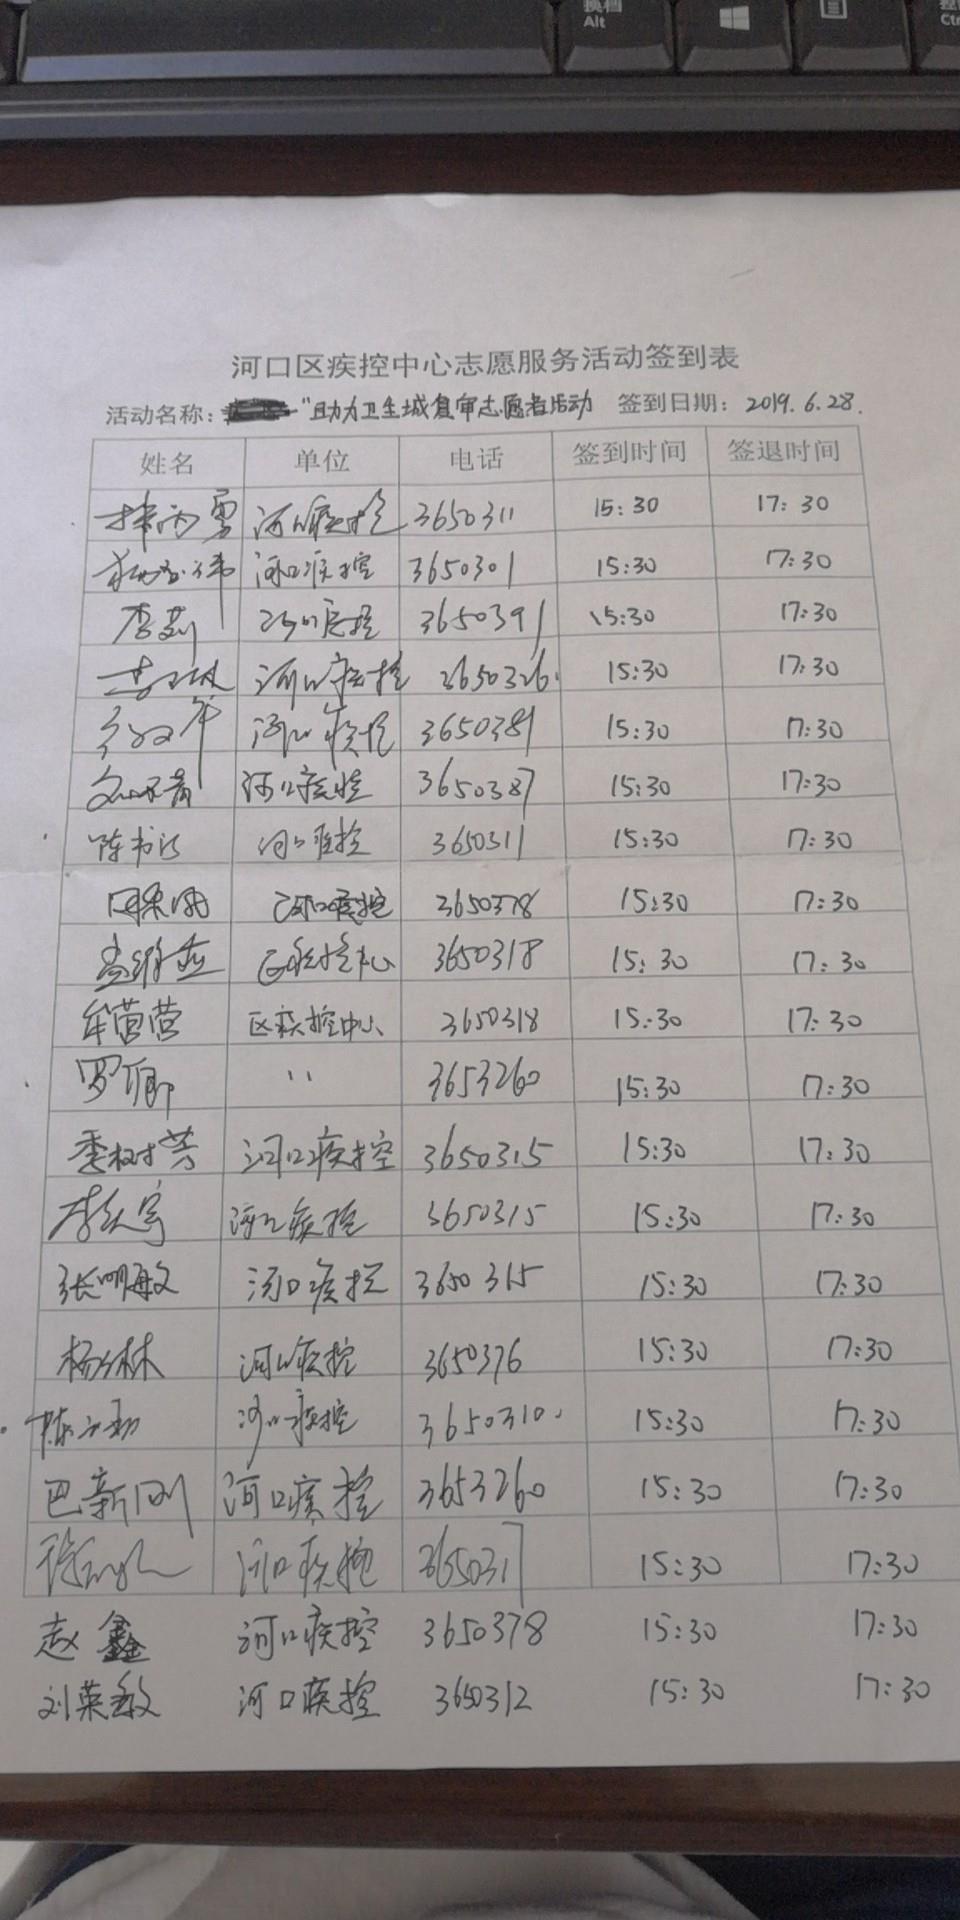 换档
Alt
Ctr
河口区疾控中心志愿服务活动签到表
活动名称: "助力卫生城复审志愿者活动 签到日期: 2019.6.28.
姓名 单位 电话 签到时间 签退时间
河口疾控 3650311 15:30 17:30
河口疾控 3650301 15:30 17:30
李莉 河口疾控 3650391 15:30 17:30
河口疾控 3650326. 15:30 17:30
河口疾控 3650381 15:30 17:30
河口疾控 3650387 15:30 17:30
陈书 河口疾控 3650311 15:30 17:30
河口疾控 3650378 15:30 17:30
孟维 区疾控中心 3650318 15:30 17:30
牟营营 区疾控中心 3650318 15:30 17:30
罗 " 3653260 15:30 17:30
季树芳 河口疾控 3650315 15:30 17:30
李 河口疾控 3650315 15:30 17:30
张明敏 河口疾控 3650315 15:30 17:30
杨 林 河口疾控 3650376 15:30 17:30
陈 河口疾控 3650310. 15:30 17:30
巴新刚 河口疾控 3653260 15:30 17:30
河口疾控 3650317 15:30 17:30
赵鑫 河口疾控 3650378 15:30 17:30
刘荣敏 河口疾控 3650312 15:30 17:30